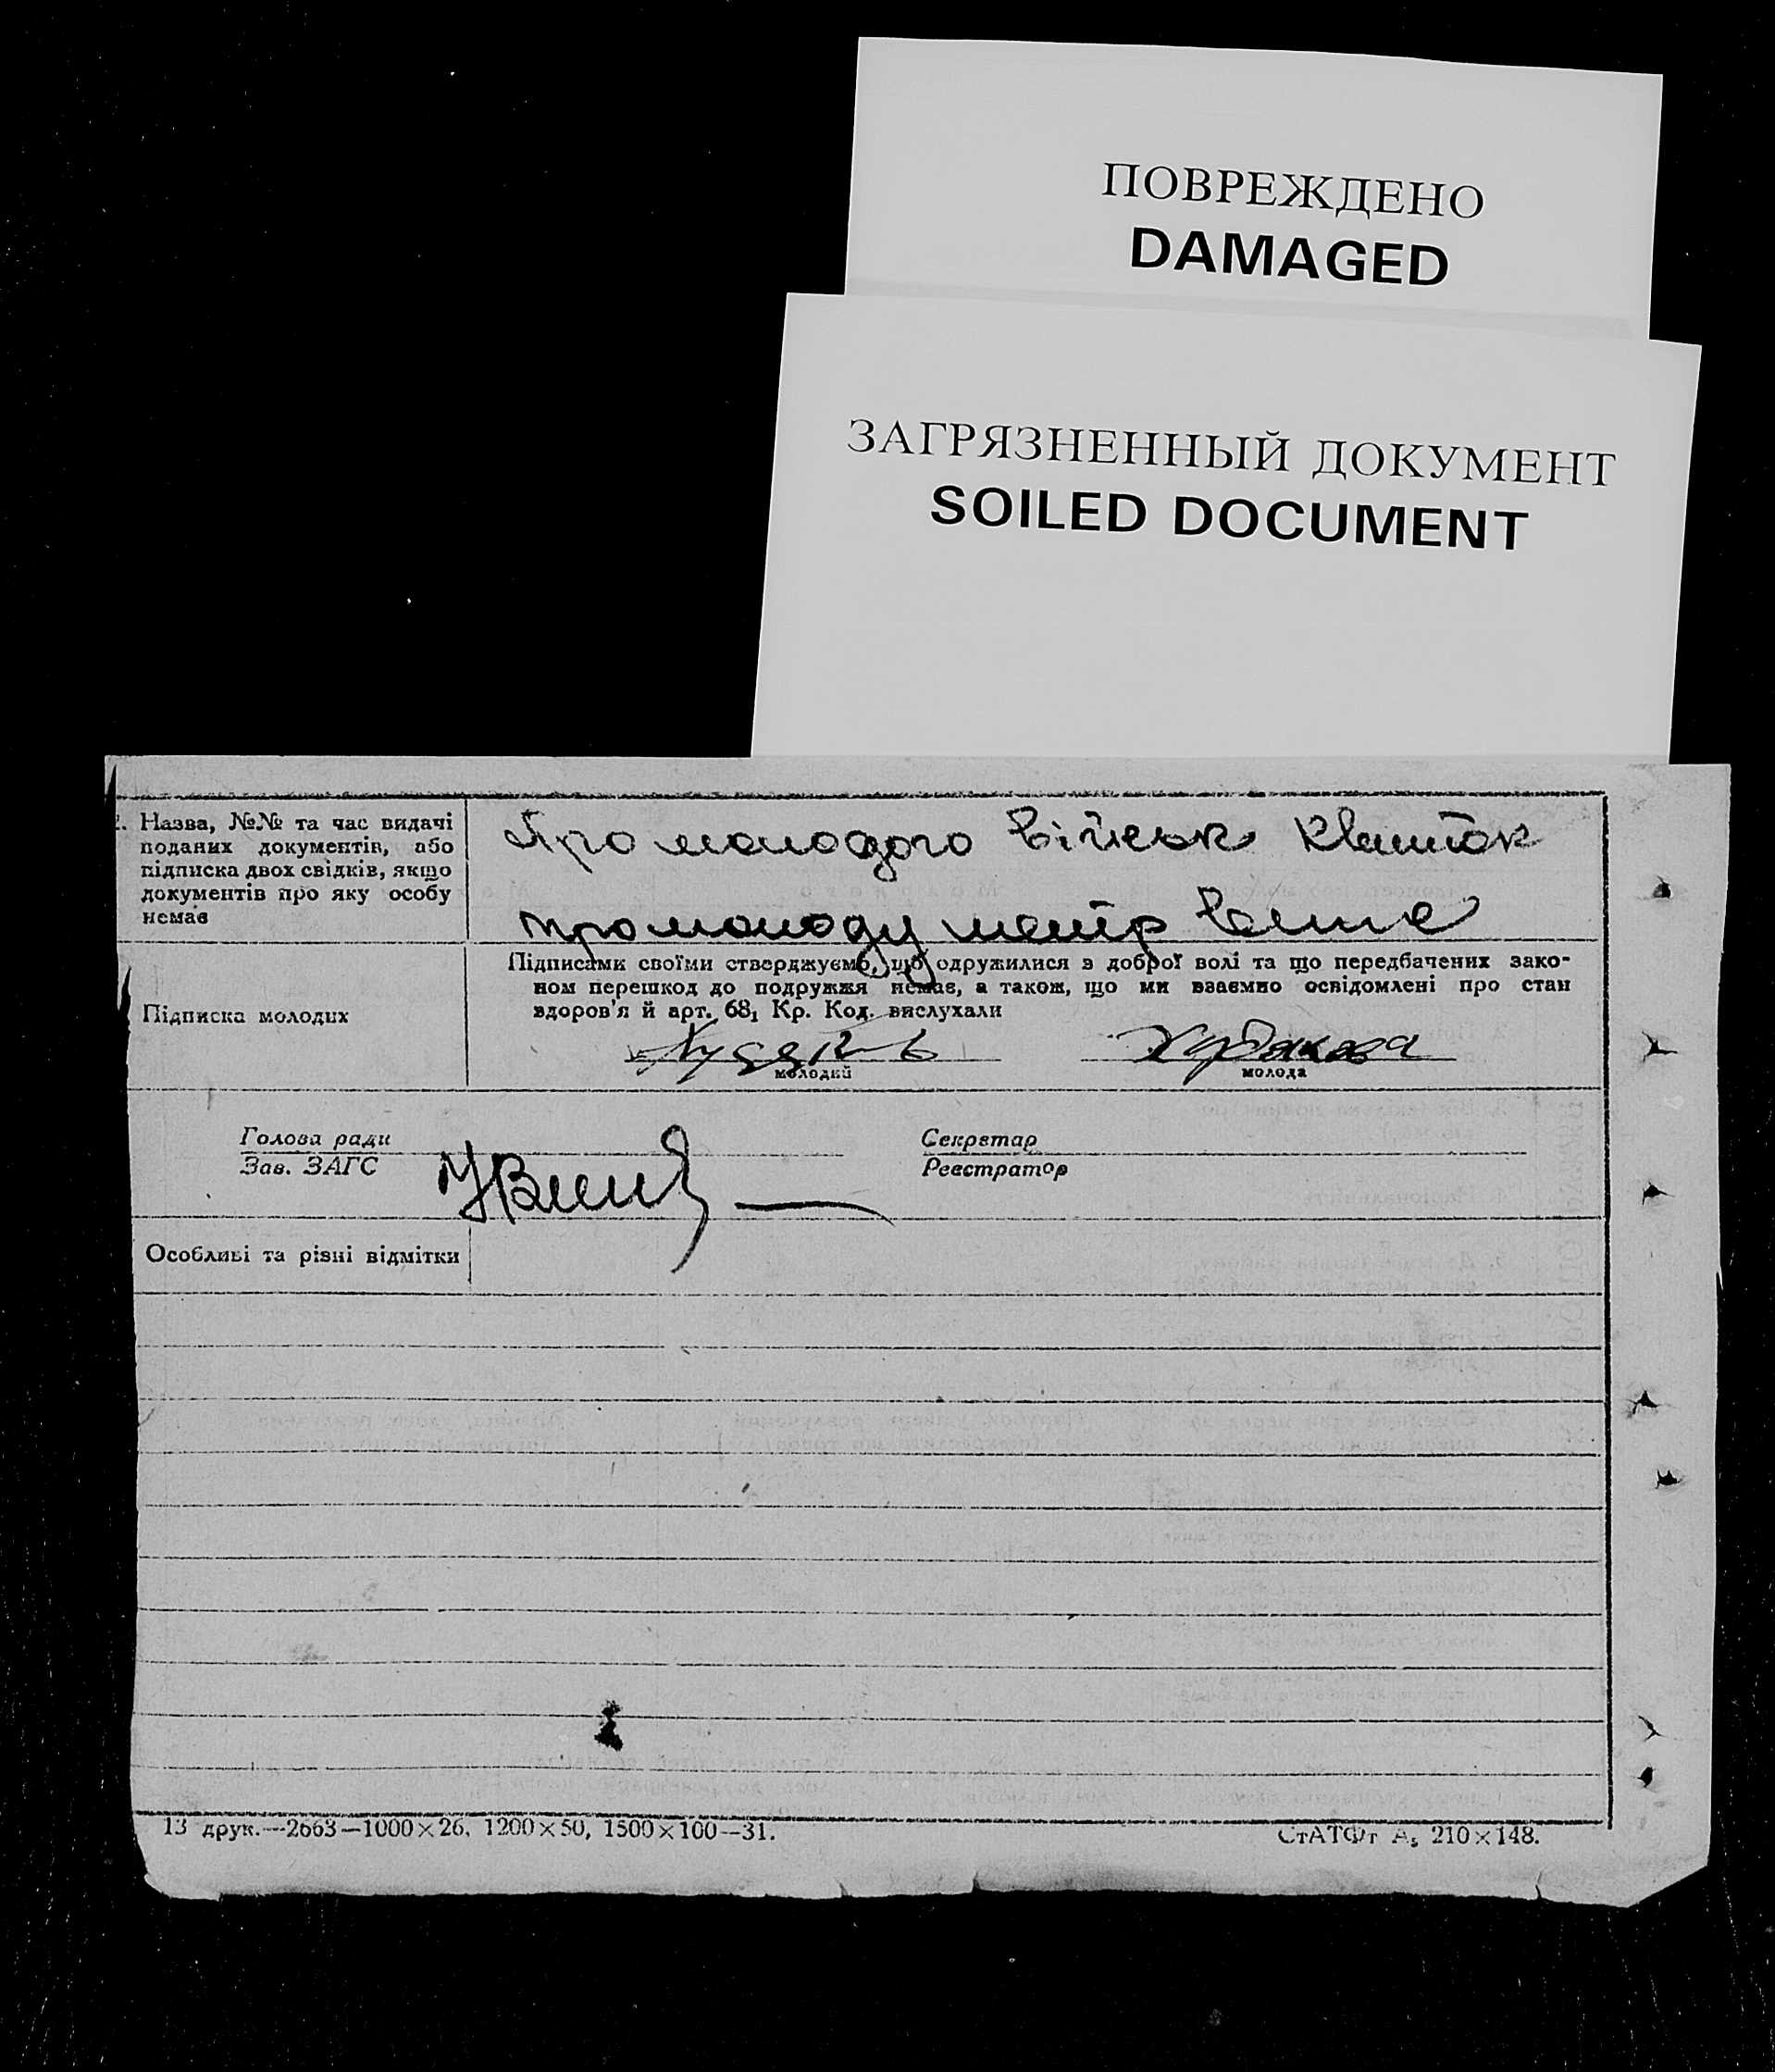 ПОВРЕЖДЕНО
DAMAGED
ЗАГРЯЗНЕННЫЙ ДОКУМЕНТ
SOILED DOCUMENT
Назва, №№ та час видачі
поданих документів, або
підписка двох свідків, якщо
документів про яку особу
немає
Про молодого військ квиток
про молоду метр
Підписка молодих
Підписами своїми стверджуємо, що одружилися з доброї волі та що передбачених зако-
ном перешкод до подружжя немає, а також, що ми взаємно освідомлені про стан
здоров'я й арт. 68₁ Кр. Код. вислухали
молодий
молода
Голова ради
Зав. ЗАГС
Секретар
Реєстратор
Особливі та різні відмітки
13 друк.—2663—1000×26, 1200×50, 1500×100—31.
СтАТФт А₅ 210×148.